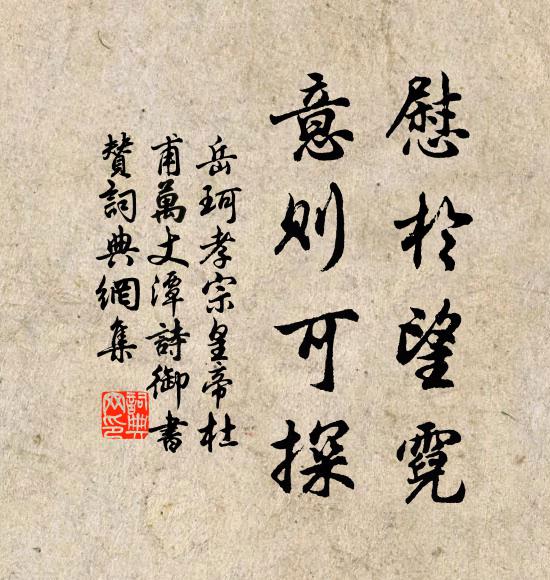 慰於望霓
意則可探
岳珂孝宗皇帝杜
甫萬丈潭詩御書
贊詞典網集
詞典網印